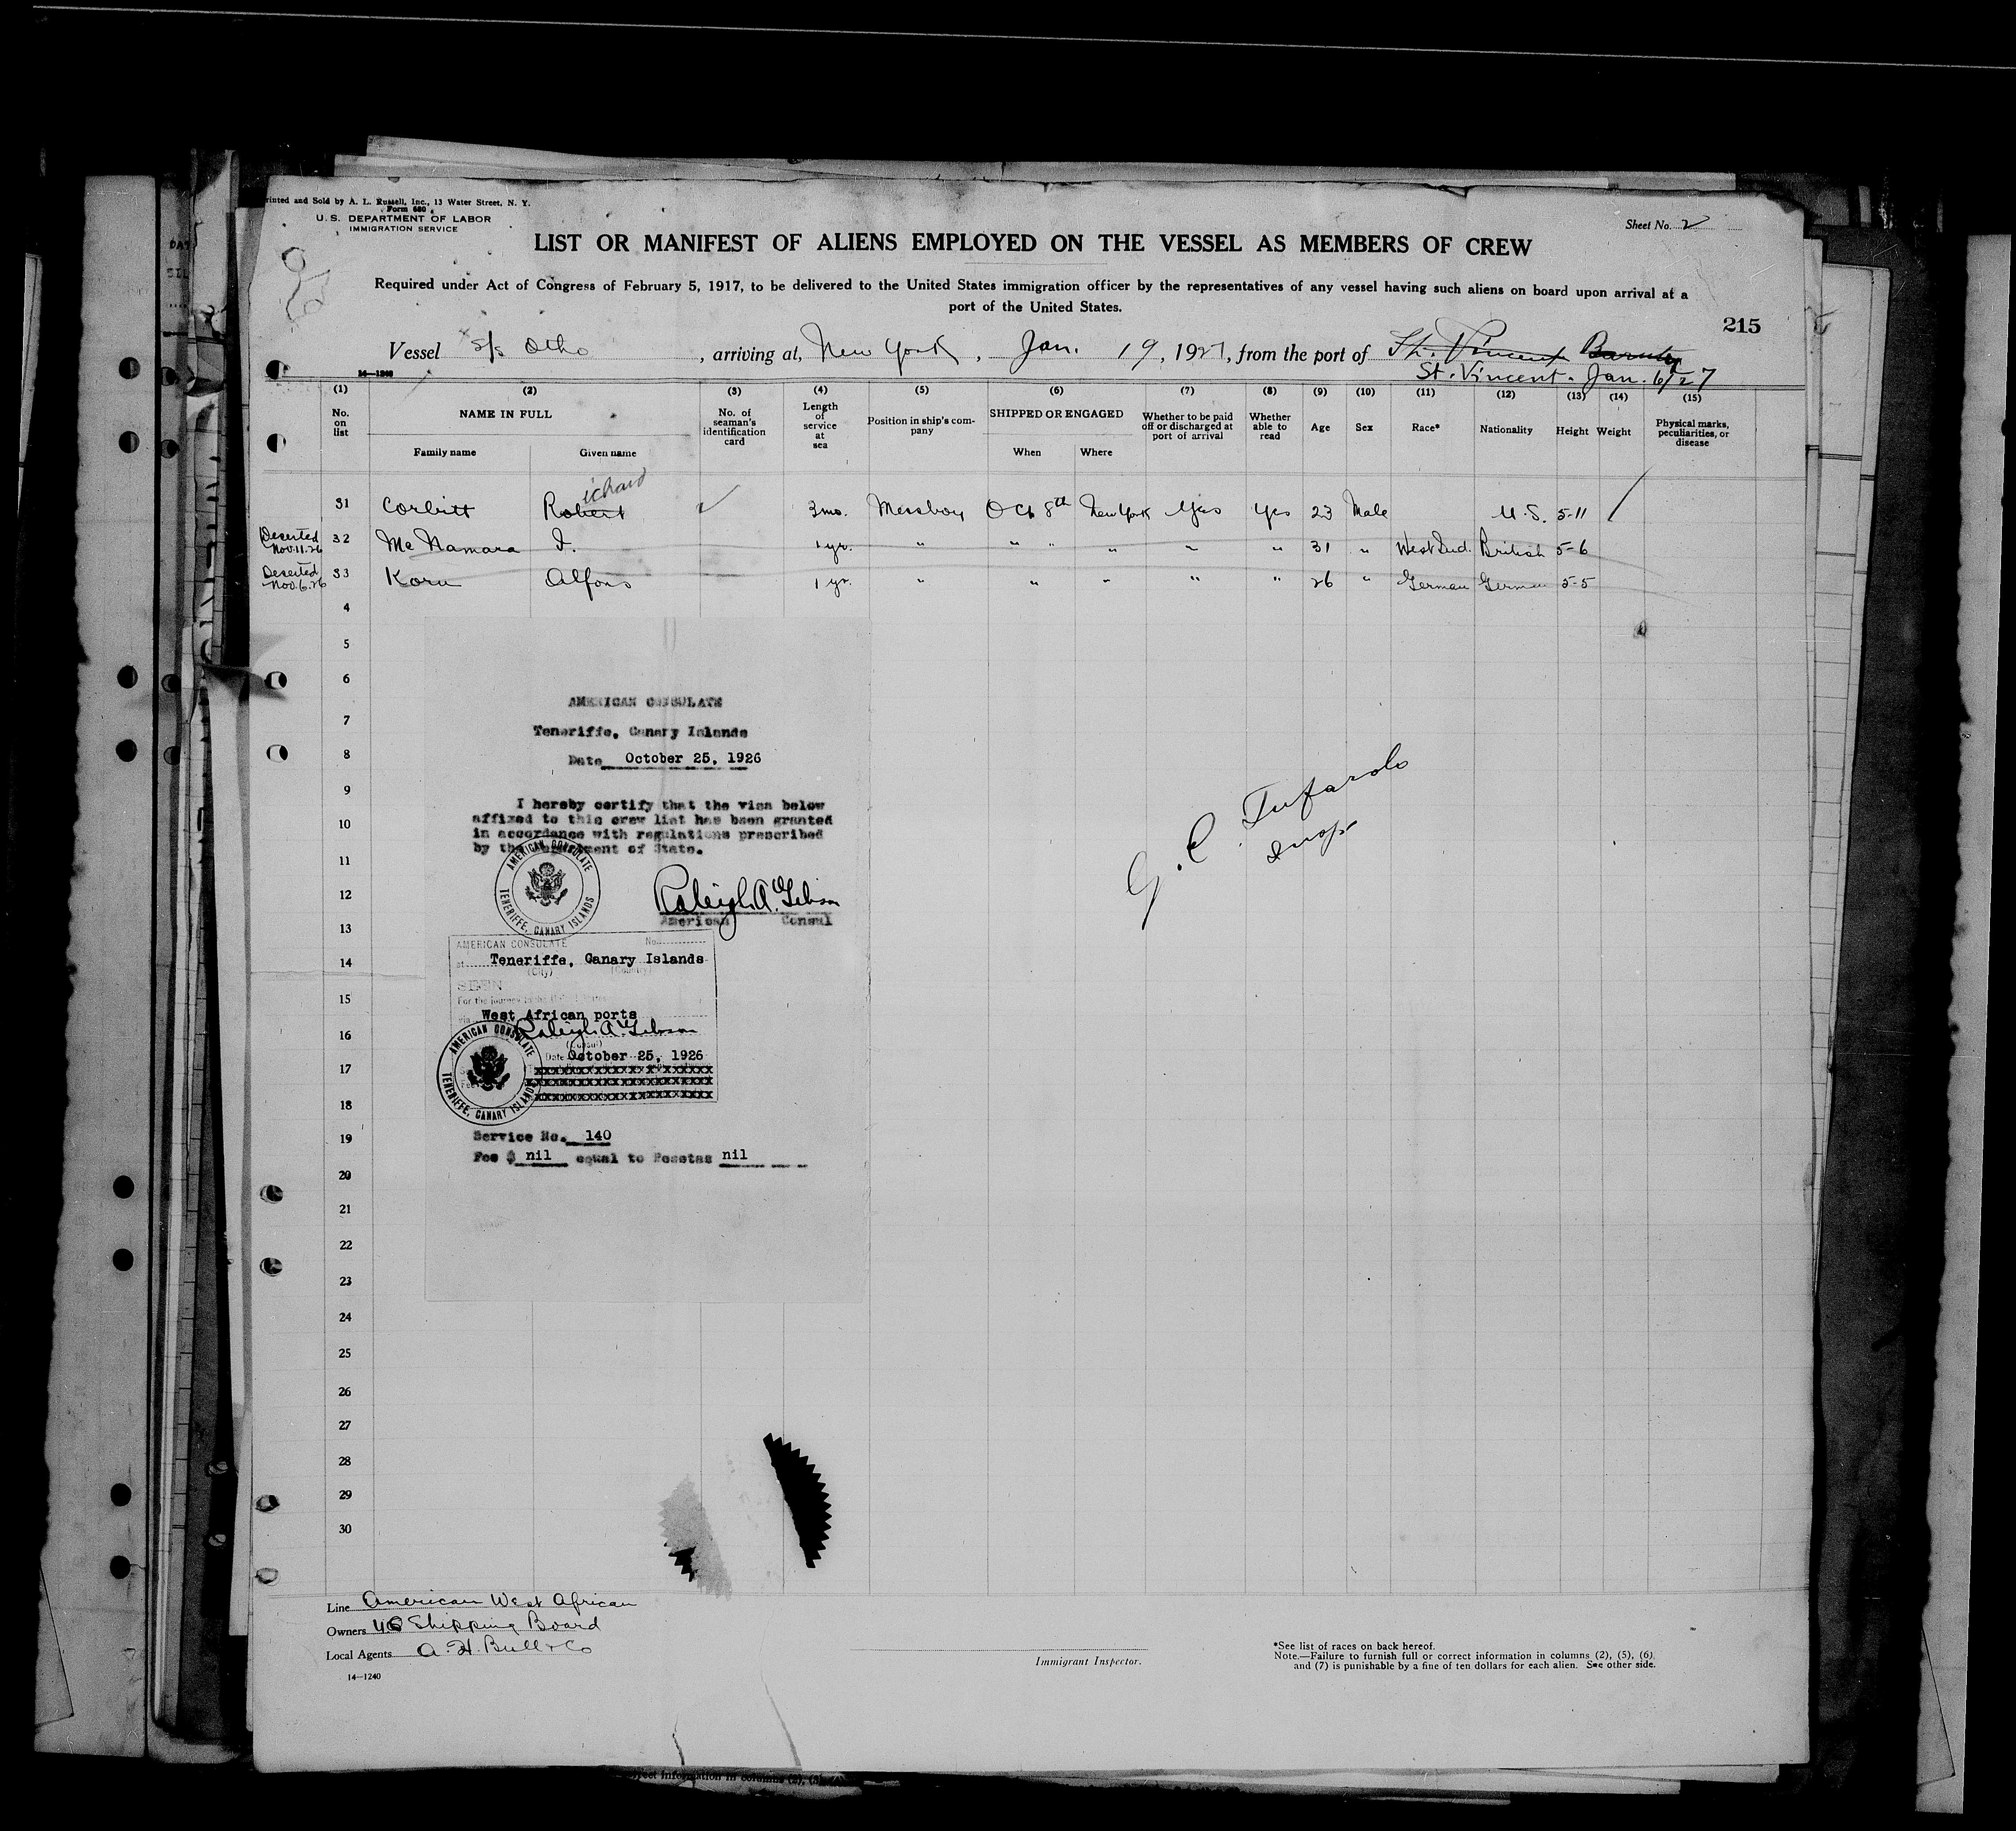 rinted and Sold by A. L. Russell, Inc., 13 Water Street, N. Y.
Form 680
U. S. DEPARTMENT OF LABOR
IMMIGRATION SERVICE
Sheet No. 2
LIST OR MANIFEST OF ALIENS EMPLOYED ON THE VESSEL AS MEMBERS OF CREW
Required under Act of Congress of February 5, 1917, to be delivered to the United States immigration officer by the representatives of any vessel having such aliens on board upon arrival at a
port of the United States.
215
Vessel S/S Otho, arriving at, New York, Jan. 19, 1927, from the port of St. Vincent
St. Vincent - Jan. 6/27
14—1240
(1) (2) (3) (4) (5) (6) (7) (8) (9) (10) (11) (12) (13) (14) (15)
No. on list NAME IN FULL No. of seaman's identification card Length of service at sea Position in ship's company SHIPPED OR ENGAGED Whether to be paid off or discharged at port of arrival Whether able to read Age Sex Race* Nationality Height Weight Physical marks, peculiarities, or disease
Family name Given name When Where
ichard
31 Corbitt Robert 3 mo. Messboy Oct 8th New York Yes Yes 23 Male U.S. 5-11
Deserted Nov. 11. 26 32 Mc Namara I. 1 yr. " " " " " " 31 " West Ind. British 5-6
Deserted Nov. 6. 26 33 Korn Alfons 1 yr. " " " " " 26 " German German 5-5
4
5
6
7
8
9
10
11
12
13
14
15
16
17
18
19
20
21
22
23
24
25
26
27
28
29
30
AMERICAN CONSULATE
Teneriffe, Canary Islands
Date October 25, 1926
I hereby certify that the visa below
affixed to this crew list has been granted
in accordance with regulations prescribed
by the Department of State.
AMERICAN CONSULATE
TENERIFFE, CANARY ISLANDS
Raleigh A. Gibson
American Consul
AMERICAN CONSULATE No.
at Teneriffe, Canary Islands
(City) (Country)
SEEN
For the journey to the United States
via West African ports
Raleigh A. Gibson
(Consul)
Date October 25, 1926
AMERICAN CONSULATE
TENERIFFE, CANARY ISLANDS
xxxxxxxxxxxxxxxxxxxxxxx
xxxxxxxxxxxxxxxxxxxxxxx
xxxxxxxxxxxxxxxxxxxxxxx
Service No. 140
Fee $ nil equal to Pesetas nil
G. C. Tufarolo
Insp
Line American West African
Owners US Shipping Board
Local Agents A. H. Bull & Co
14—1240
Immigrant Inspector.
*See list of races on back hereof.
Note.—Failure to furnish full or correct information in columns (2), (5), (6)
and (7) is punishable by a fine of ten dollars for each alien. See other side.